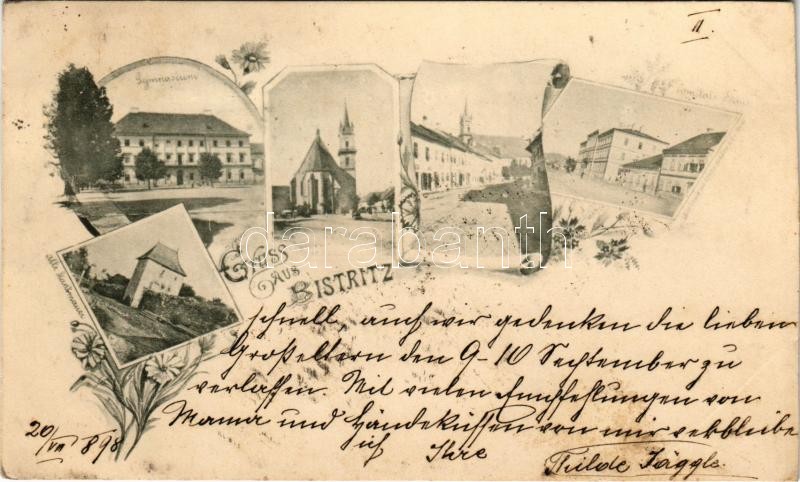 II.
Gymnasium
alte Stadtmauer
GRUSS
AUS
BISTRITZ
darabanth
schnell, auch wir gedenken die lieben
Großeltern den 9-10 September zu
verlassen. Mit vielen Empfehlungen von
Mama und Händeküssen von mir verbleibe
20/VIII 898
ich Ihre
Tilde Jäggle.